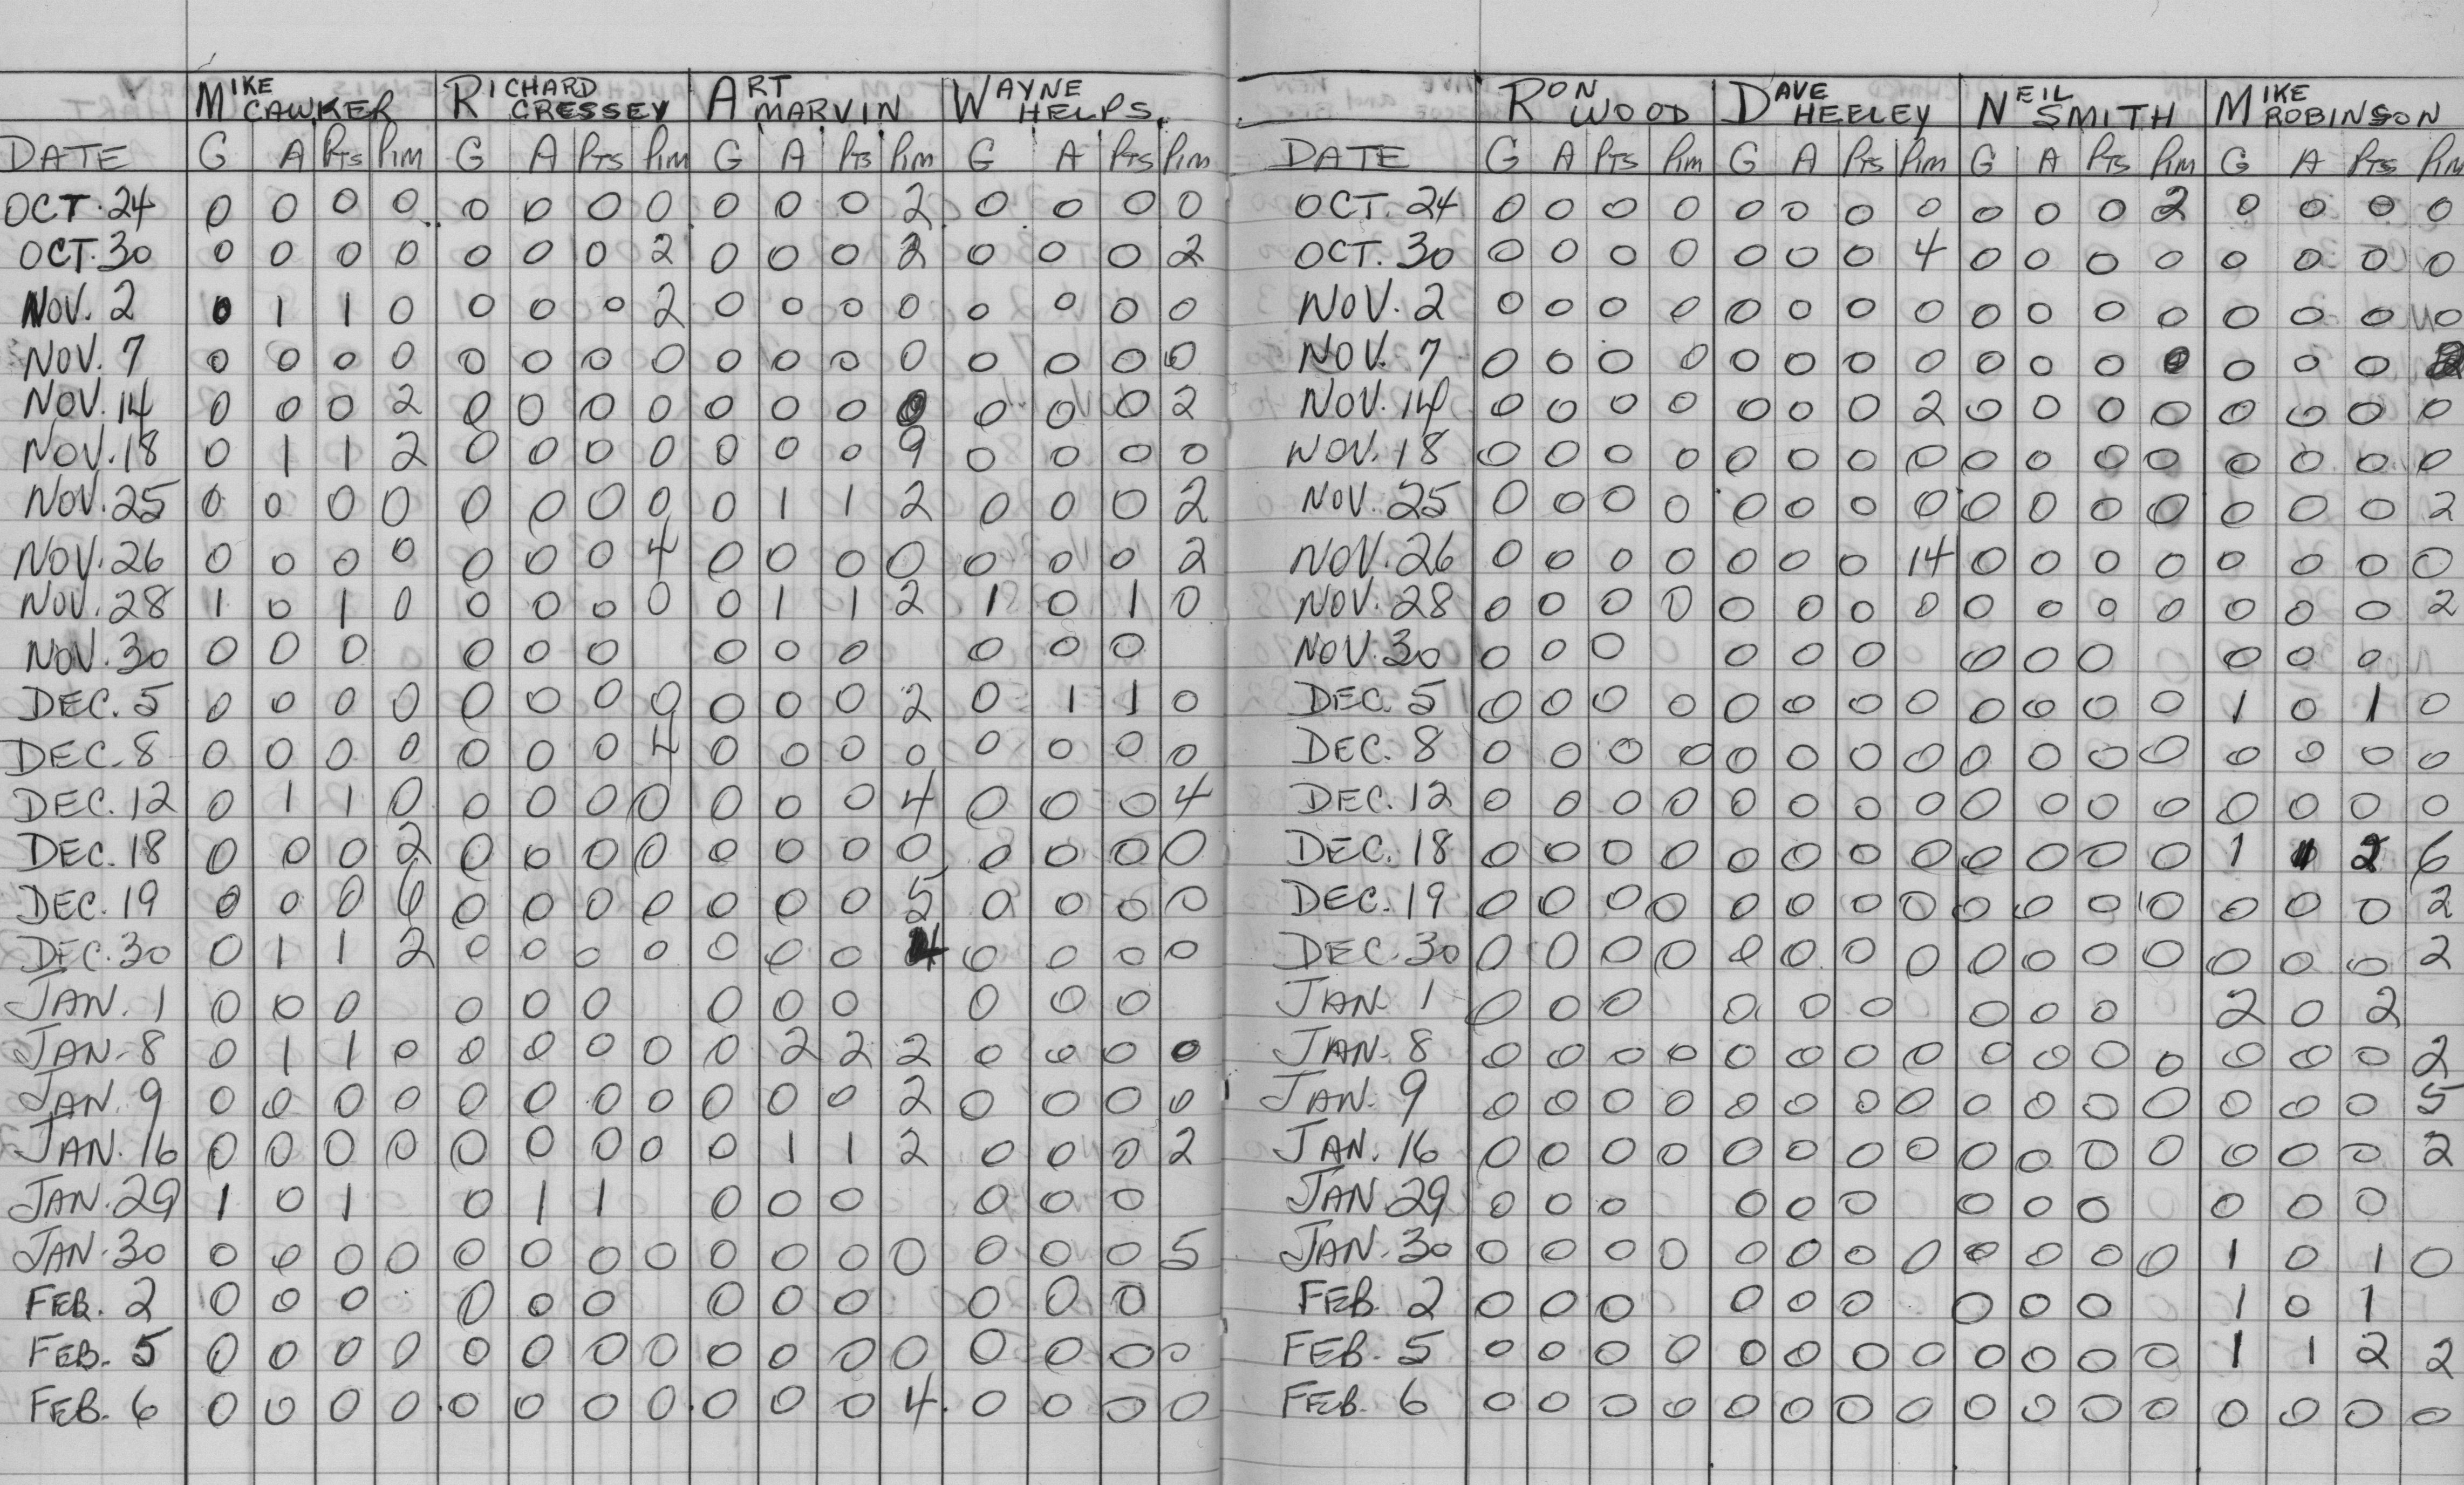 MIKE CAWKER RICHARD CRESSEY ART MARVIN WAYNE HELPS.
DATE G A PTS PIM G A PTS PIM G A PTS PIM G A PTS PIM
OCT. 24 0 0 0 0 0 0 0 0 0 0 0 2 0 0 0 0
OCT. 30 0 0 0 0 0 0 0 2 0 0 0 2 0 0 0 2
NOV. 2 0 1 1 0 0 0 0 2 0 0 0 0 0 0 0 0
NOV. 7 0 0 0 0 0 0 0 0 0 0 0 0 0 0 0 0
NOV. 14 0 0 0 2 0 0 0 0 0 0 0 0 0 0 0 2
NOV. 18 0 1 1 2 0 0 0 0 0 0 0 9 0 0 0 0
NOV. 25 0 0 0 0 0 0 0 0 0 1 1 2 0 0 0 2
NOV. 26 0 0 0 0 0 0 0 4 0 0 0 0 0 0 0 2
NOV. 28 1 0 1 0 0 0 0 0 0 1 1 2 1 0 1 0
NOV. 30 0 0 0 0 0 0 0 0 0 0 0 0
DEC. 5 0 0 0 0 0 0 0 0 0 0 0 2 0 1 1 0
DEC. 8 0 0 0 0 0 0 0 4 0 0 0 0 0 0 0 0
DEC. 12 0 1 1 0 0 0 0 0 0 0 0 4 0 0 0 4
DEC. 18 0 0 0 2 0 0 0 0 0 0 0 0 0 0 0 0
DEC. 19 0 0 0 0 0 0 0 0 0 0 5 0 0 0 0
DEC. 30 0 1 1 2 0 0 0 0 0 0 0 4 0 0 0 0
JAN. 1 0 0 0 0 0 0 0 0 0 0 0 0
JAN. 8 0 1 1 0 0 0 0 0 0 2 2 2 0 0 0 0
JAN. 9 0 0 0 0 0 0 0 0 0 0 0 2 0 0 0 0
JAN. 16 0 0 0 0 0 0 0 0 0 1 1 2 0 0 0 2
JAN. 29 1 0 1 0 1 1 0 0 0 0 0 0
JAN. 30 0 0 0 0 0 0 0 0 0 0 0 0 0 0 0 5
FEB. 2 0 0 0 0 0 0 0 0 0 0 0 0
FEB. 5 0 0 0 0 0 0 0 0 0 0 0 0 0 0 0 0
FEB. 6 0 0 0 0 0 0 0 0 0 0 0 4 0 0 0 0
RON WOOD DAVE HEELEY NEIL SMITH MIKE ROBINSON
DATE G A PTS PIM G A PTS PIM G A PTS PIM G A PTS PIM
OCT. 24 0 0 0 0 0 0 0 0 0 0 0 2 0 0 0 0
OCT. 30 0 0 0 0 0 0 0 4 0 0 0 0 0 0 0 0
NOV. 2 0 0 0 0 0 0 0 0 0 0 0 0 0 0 0 0
NOV. 7 0 0 0 0 0 0 0 0 0 0 0 0 0 0 0
NOV. 14 0 0 0 0 0 0 0 2 0 0 0 0 0 0 0 0
NOV. 18 0 0 0 0 0 0 0 0 0 0 0 0 0 0 0 0
NOV. 25 0 0 0 0 0 0 0 0 0 0 0 0 0 0 0 2
NOV. 26 0 0 0 0 0 0 0 14 0 0 0 0 0 0 0 0
NOV. 28 0 0 0 0 0 0 0 0 0 0 0 0 0 0 0 2
NOV. 30 0 0 0 0 0 0 0 0 0 0 0 0
DEC. 5 0 0 0 0 0 0 0 0 0 0 0 0 1 0 1 0
DEC. 8 0 0 0 0 0 0 0 0 0 0 0 0 0 0 0 0
DEC. 12 0 0 0 0 0 0 0 0 0 0 0 0 0 0 0 0
DEC. 18 0 0 0 0 0 0 0 0 0 0 0 0 1 1 2 6
DEC. 19 0 0 0 0 0 0 0 0 0 0 0 0 0 0 0 2
DEC. 30 0 0 0 0 0 0 0 0 0 0 0 0 0 0 0 2
JAN. 1 0 0 0 0 0 0 0 0 0 2 0 2
JAN. 8 0 0 0 0 0 0 0 0 0 0 0 0 0 0 0 2
JAN. 9 0 0 0 0 0 0 0 0 0 0 0 0 0 0 0 5
JAN. 16 0 0 0 0 0 0 0 0 0 0 0 0 0 0 0 2
JAN. 29 0 0 0 0 0 0 0 0 0 0 0 0
JAN. 30 0 0 0 0 0 0 0 0 0 0 0 0 1 0 1 0
FEB. 2 0 0 0 0 0 0 0 0 0 1 0 1
FEB. 5 0 0 0 0 0 0 0 0 0 0 0 0 1 1 2 2
FEB. 6 0 0 0 0 0 0 0 0 0 0 0 0 0 0 0 0